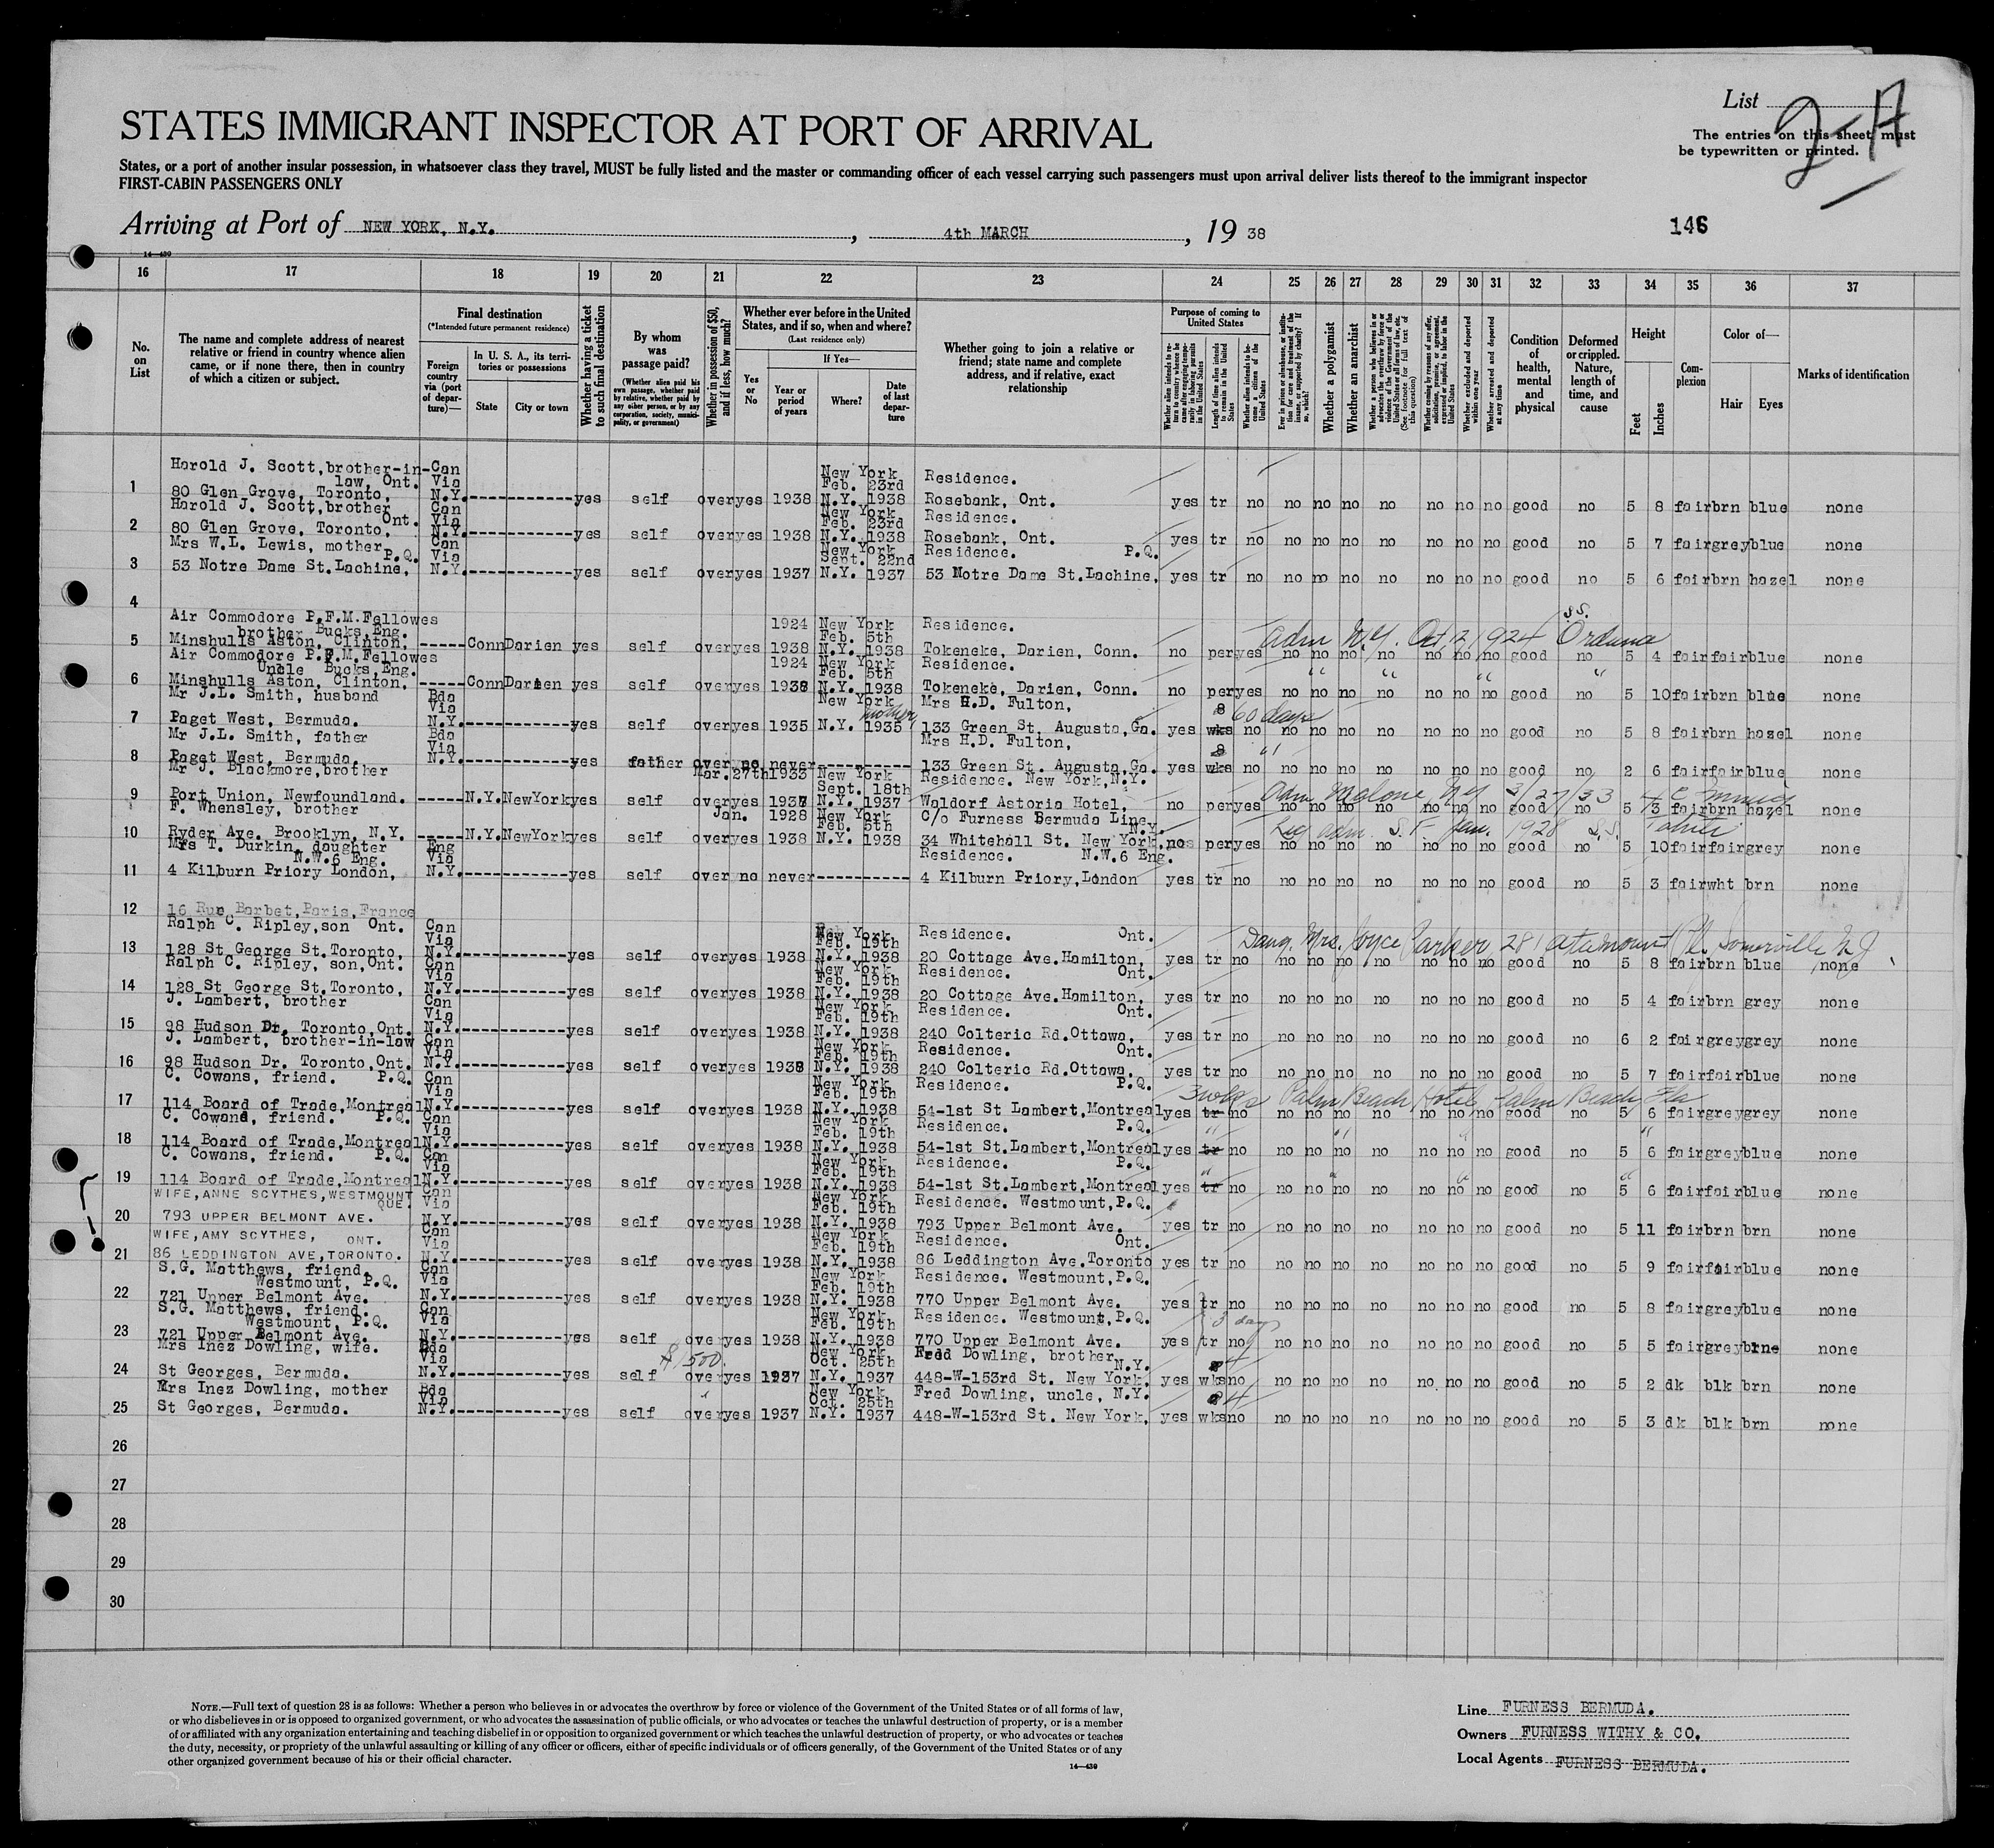 List 2-A
STATES IMMIGRANT INSPECTOR AT PORT OF ARRIVAL
The entries on this sheet must
be typewritten or printed.
States, or a port of another insular possession, in whatsoever class they travel, MUST be fully listed and the master or commanding officer of each vessel carrying such passengers must upon arrival deliver lists thereof to the immigrant inspector
FIRST-CABIN PASSENGERS ONLY
Arriving at Port of NEW YORK, N.Y. , 4th MARCH , 19 38
146
14—430
16 17 18 19 20 21 22 23 24 25 26 27 28 29 30 31 32 33 34 35 36 37
No. on List
The name and complete address of nearest relative or friend in country whence alien came, or if none there, then in country of which a citizen or subject.
Final destination
(*Intended future permanent residence)
Foreign country via (port of departure)—
In U. S. A., its territories or possessions
State
City or town
Whether having a ticket to such final destination
By whom was passage paid?
(Whether alien paid his own passage, whether paid by relative, whether paid by any other person, or by any corporation, society, municipality, or government)
Whether in possession of $50, and if less, how much?
Whether ever before in the United States, and if so, when and where?
(Last residence only)
Yes or No
If Yes—
Year or period of years
Where?
Date of last departure
Whether going to join a relative or friend; state name and complete address, and if relative, exact relationship
Purpose of coming to United States
Length of time alien intends to remain in the United States
Whether alien intends to become a citizen of the United States
Whether a polygamist
Whether an anarchist
Whether excluded and deported within one year
Whether arrested and deported at any time
Condition of health, mental and physical
Deformed or crippled. Nature, length of time, and cause
Height
Feet
Inches
Complexion
Color of—
Hair
Eyes
Marks of identification
Harold J. Scott,brother-in-law, Ont.
1 80 Glen Grove, Toronto, Can Via N.Y. yes self over yes 1938 New York N.Y. Feb. 23rd 1938 Residence. Rosebank, Ont. yes tr no no no no no no no no good no 5 8 fair brn blue none
Harold J. Scott,brother Ont.
2 80 Glen Grove, Toronto, Can Via N.Y. yes self over yes 1938 New York N.Y. Feb. 23rd 1938 Residence. Rosebank, Ont. yes tr no no no no no no no no good no 5 7 fair grey blue none
Mrs W.L. Lewis, mother P.Q.
3 53 Notre Dame St.Lachine, Can Via N.Y. yes self over yes 1937 New York N.Y. Sept. 22nd 1937 Residence. P.Q. 53 Notre Dame St.Lachine, yes tr no no no no no no no no good no 5 6 fair brn hazel none
4
Air Commodore P.F.M.Fellowes brother Bucks,Eng.
5 Minshulls Aston, Clinton. Conn Darien yes self over yes 1924 1938 New York N.Y. Feb. 5th 1938 Residence. Tokeneke, Darien, Conn. no per yes no no no no no no no good no 5 4 fair fair blue none
adm N.Y. Oct 2, 1924 SS. Orduna
Air Commodore P.F.M.Fellowes Uncle Bucks,Eng.
6 Minshulls Aston, Clinton. Conn Darien yes self over yes 1924 1938 New York N.Y. Feb. 5th 1938 Residence. Tokeneke, Darien, Conn. no per yes no no no no no no no good no 5 10 fair brn blue none
" " " "
Mr J.L. Smith, husband
7 Paget West, Bermuda. Bda Via N.Y. yes self over yes 1935 New York N.Y. 1935 mother Mrs H.D. Fulton, 133 Green St. Augusta,Ga. yes 8 wks 60 days no no no no no no no no good no 5 8 fair brn hazel none
Mr J.L. Smith, father
8 Paget West, Bermuda. Bda Via N.Y. yes father over no never Mrs H.D. Fulton, 133 Green St. Augusta,Ga. yes 8 wks " no no no no no no no no good no 2 6 fair fair blue none
Mr J. Blackmore,brother
9 Port Union, Newfoundland. N.Y. New York yes self over yes Mar. 27th 1933 1937 New York N.Y. Sept. 18th 1937 Residence. New York,N.Y. Waldorf Astoria Hotel, no per yes no no no no no no no good no 5 3 fair brn hazel none
Adm Malone, NY 3/27/33
F. Whensley, brother
10 Ryder Ave. Brooklyn, N.Y. N.Y. New York yes self over yes Jan. 1928 1938 New York N.Y. Feb. 5th 1938 C/o Furness Bermuda Line N.Y. 34 Whitehall St. New York, no per yes no no no no no no no good no 5 10 fair fair grey none
adm. S.F. Jan. 1928 S.S. Tahiti
Mrs T. Durkin, daughter N.W.6 Eng.
11 4 Kilburn Priory London, Eng Via N.Y. yes self over no never Residence. N.W.6 Eng. 4 Kilburn Priory,London yes tr no no no no no no no no good no 5 3 fair wht brn none
12 16 Rue Barbet,Paris,France
Ralph C. Ripley,son Ont.
13 128 St.George St.Toronto, Can Via N.Y. yes self over yes 1938 New York N.Y. Feb. 19th 1938 Residence. Ont. 20 Cottage Ave.Hamilton, yes tr no no no no no no no no good no 5 8 fair brn blue none
Daug. Mrs. Joyce Parker 281 Altamount Pl. Somerville N.J.
Ralph C. Ripley, son,Ont.
14 128 St George St.Toronto, Can Via N.Y. yes self over yes 1938 New York N.Y. Feb. 19th 1938 Residence. Ont. 20 Cottage Ave.Hamilton, yes tr no no no no no no no no good no 5 4 fair brn grey none
J. Lambert, brother
15 98 Hudson Dr. Toronto,Ont. Can Via N.Y. yes self over yes 1938 New York N.Y. Feb. 19th 1938 Residence. Ont. 240 Colteric Rd.Ottawa, yes tr no no no no no no no no good no 6 2 fair grey grey none
J. Lambert, brother-in-law
16 98 Hudson Dr. Toronto,Ont. Can Via N.Y. yes self over yes 1938 New York N.Y. Feb. 19th 1938 Residence. Ont. 240 Colteric Rd.Ottawa, yes tr no no no no no no no no good no 5 7 fair fair blue none
C. Cowans, friend. P.Q.
17 114 Board of Trade,Montreal Can Via N.Y. yes self over yes 1938 New York N.Y. Feb. 19th 1938 Residence. P.Q. 54-1st St Lambert,Montreal yes tr no no no no no no no no good no 5 6 fair grey grey none
3 wks Palm Beach Hotel Palm Beach, Fla
C. Cowans, friend. P.Q.
18 114 Board of Trade,Montreal Can Via N.Y. yes self over yes 1938 New York N.Y. Feb. 19th 1938 Residence. P.Q. 54-1st St.Lambert,Montreal yes tr no no no no no no no no good no 5 6 fair grey blue none
C. Cowans, friend. P.Q.
19 114 Board of Trade,Montreal Can Via N.Y. yes self over yes 1938 New York N.Y. Feb. 19th 1938 Residence. P.Q. 54-1st St.Lambert,Montreal yes tr no no no no no no no no good no 5 6 fair fair blue none
WIFE,ANNE SCYTHES,WESTMOUNT QUE.
20 793 UPPER BELMONT AVE. Can Via N.Y. yes self over yes 1938 New York N.Y. Feb. 19th 1938 Residence. Westmount,P.Q. 793 Upper Belmont Ave. yes tr no no no no no no no no good no 5 11 fair brn brn none
WIFE,AMY SCYTHES, ONT.
21 86 LEDDINGTON AVE,TORONTO. Can Via N.Y. yes self over yes 1938 New York N.Y. Feb. 19th 1938 Residence. Ont. 86 Leddington Ave.Toronto yes tr no no no no no no no no good no 5 9 fair fair blue none
S.G. Matthews, friend. Westmount, P.Q.
22 721 Upper Belmont Ave. Can Via N.Y. yes self over yes 1938 New York N.Y. Feb. 19th 1938 Residence. Westmount,P.Q. 770 Upper Belmont Ave. yes tr no no no no no no no no good no 5 8 fair grey blue none
S.G. Matthews, friend. Westmount, P.Q.
23 721 Upper Belmont Ave. Can Via N.Y. yes self over yes 1938 New York N.Y. Feb. 19th 1938 Residence. Westmount,P.Q. 770 Upper Belmont Ave. yes tr 3 days no no no no no no no no good no 5 5 fair grey brn none
Mrs Inez Dowling, wife.
24 St Georges, Bermuda. Bda Via N.Y. yes self $1500. over yes 1937 New York N.Y. Oct. 25th 1937 Fred Dowling, brother N.Y. 448-W-153rd St. New York, yes 4 wks no no no no no no no no good no 5 2 dk blk brn none
Mrs Inez Dowling, mother
25 St Georges, Bermuda. Bda Via N.Y. yes self " over yes 1937 New York N.Y. Oct. 25th 1937 Fred Dowling, uncle, N.Y. 448-W-153rd St. New York, yes 4 wks no no no no no no no no good no 5 3 dk blk brn none
26
27
28
29
30
NOTE.—Full text of question 28 is as follows: Whether a person who believes in or advocates the overthrow by force or violence of the Government of the United States or of all forms of law,
or who disbelieves in or is opposed to organized government, or who advocates the assassination of public officials, or who advocates or teaches the unlawful destruction of property, or is a member
of or affiliated with any organization entertaining and teaching disbelief in or opposition to organized government or which teaches the unlawful destruction of property, or who advocates or teaches
the duty, necessity, or propriety of the unlawful assaulting or killing of any officer or officers, either of specific individuals or of officers generally, of the Government of the United States or of any
other organized government because of his or their official character.
14—430
Line FURNESS BERMUDA.
Owners FURNESS WITHY & CO.
Local Agents FURNESS BERMUDA.